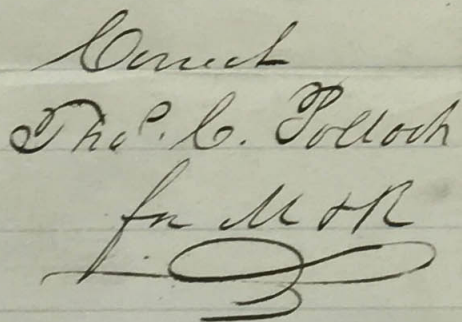 Correct
Thos. C. Pollock
for M & R